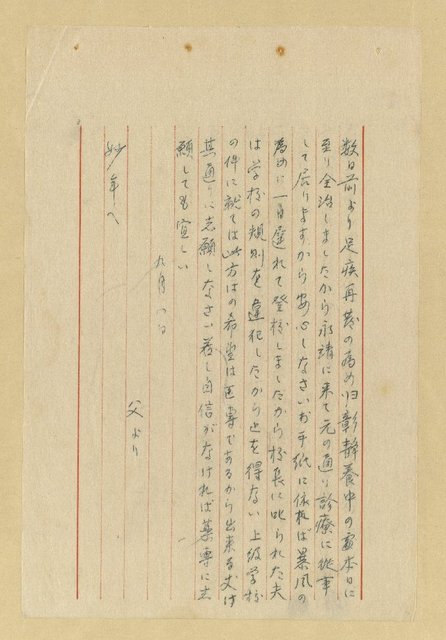 数日前より足疾再発の為め归彰静養中の處本日に
至り全治しましたから永靖に来て元の通り診療に從事
して居りますから安心しなさいお手紙に依れば暴風の
為めに一日遅れて登校しましたから校長に叱られた夫
は学校の規則を違犯したから止を得ない上級学校
の件に就ては此方はの希望は医専であるから出来る丈け
其通りに志願しなさい若し自信がなければ薬専に志
願しても宜しい
九月一日
父より
妙年へ